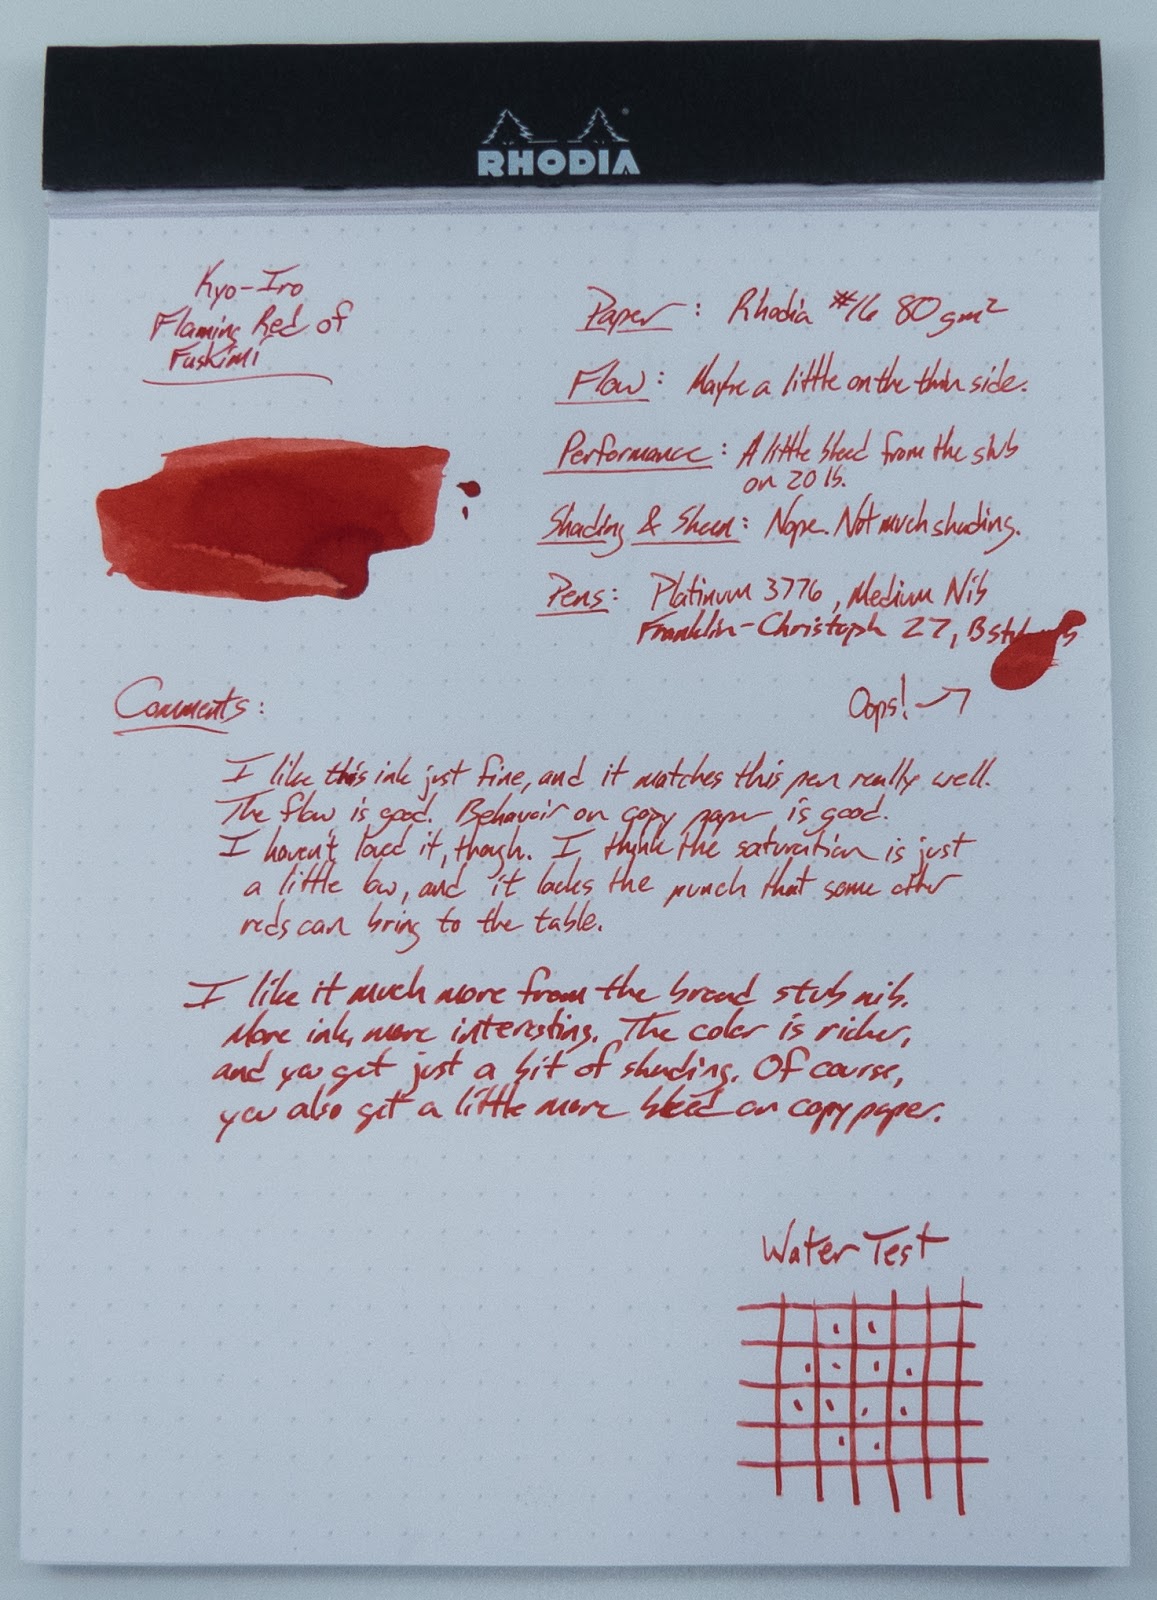 RHODIA
Kyo-Iro
Flaming Red of
Fuskimi
Paper: Rhodia #16 80gm²
Flow: Maybe a little on the thin side.
Performance: A little bleed from the stub
on 20 lb.
Shading & Sheen: Nope. Not much shading.
Pens: Platinum 3776, Medium Nib
Franklin-Christoph 27, B
Oops!
Comments:
I like this ink just fine, and it matches this pen really well.
The flow is good. Behavoir on copy paper is good.
I haven't loved it, though. I think the saturation is just
a little low, and it lacks the punch that some other
reds can bring to the table.
I like it much more from the broad stub nib.
More ink, more interesting. The color is richer,
and you get just a bit of shading. Of course,
you also get a little more bleed on copy paper.
Water Test